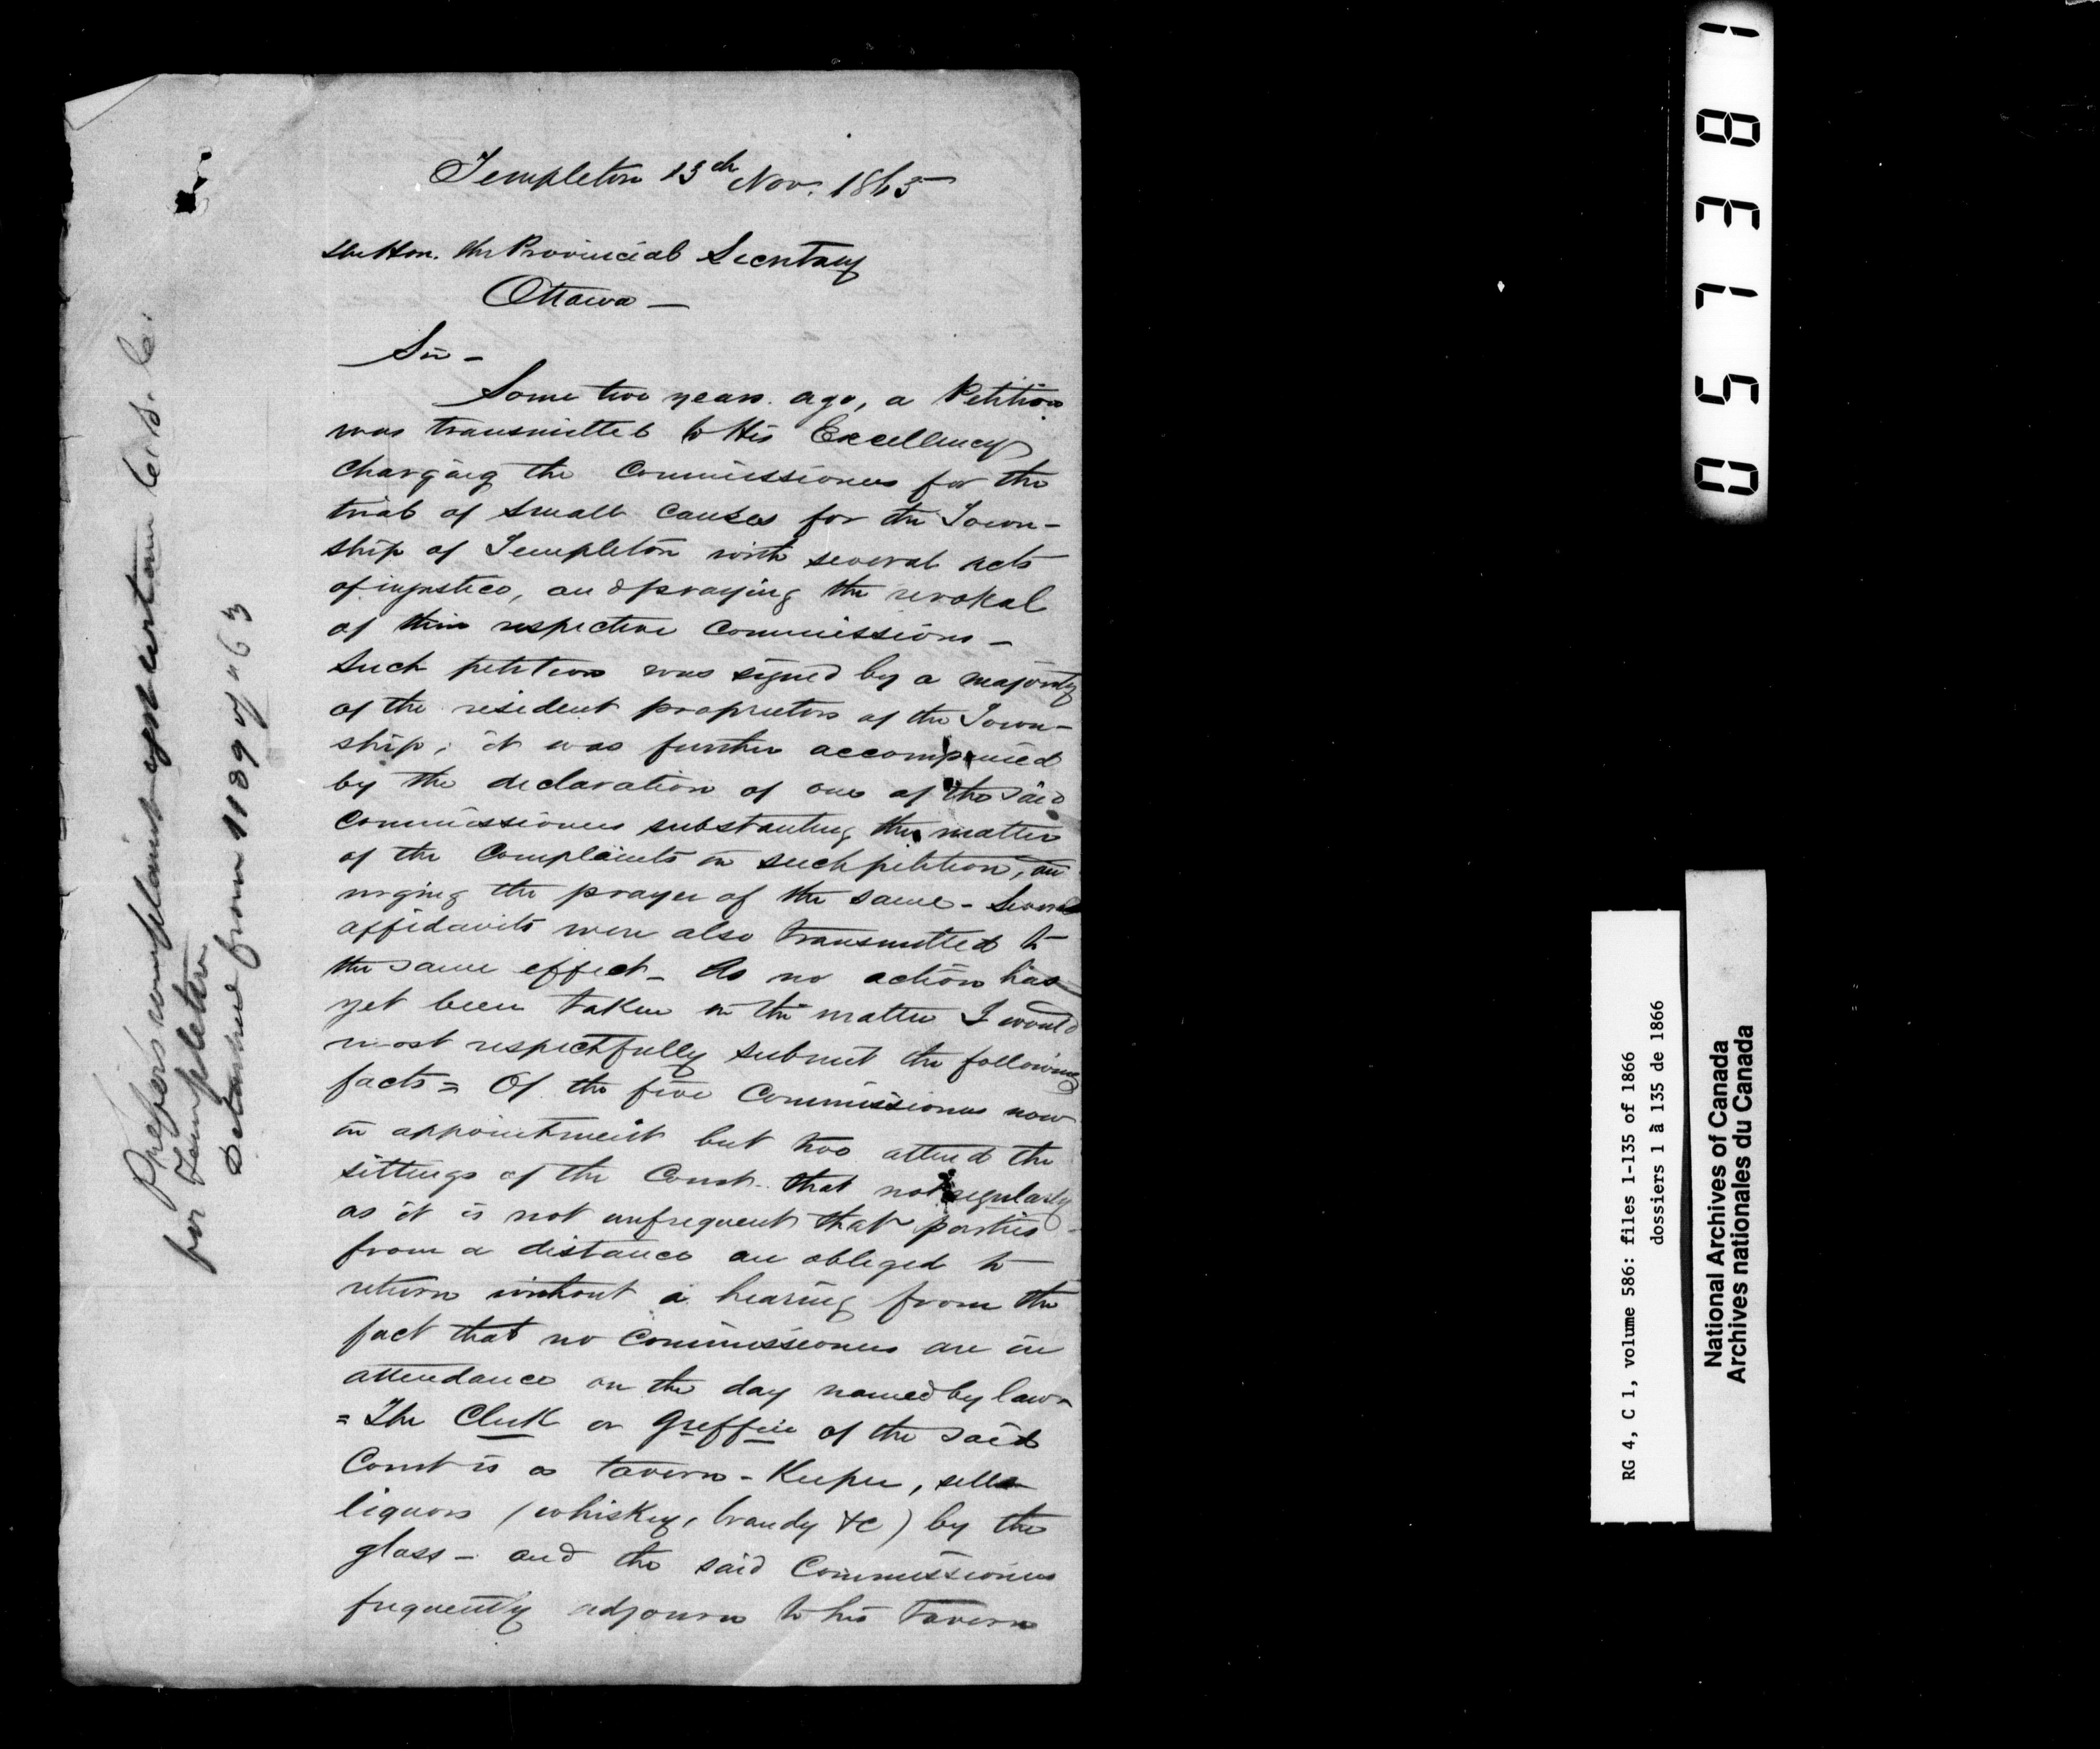 Templeton 13th Nov. 1865
The Hon. the Provincial Secretary
Ottawa —
Sir —
Some two years ago, a Petition
was transmitted to His Excellency
charging the Commissioners for the
trial of small causes for the Town-
ship of Templeton with several acts
of injustice, and praying the revokal
of their respective Commissions —
Such petition was signed by a majority
of the resident proprietors of the Town-
ship; it was further accompanied
by the declaration of one of the said
Commissioners substanting the matter
of the Complaints in such petition, an
urging the prayer of the same - Several
affidavits were also transmitted to
the same effect - As no action has
yet been taken in the matter I would
most respectfully submit the following
facts = Of the five Commissioners now
in appointment but two attend the
sittings of the Court. that not regularly
as it is not unfrequent that parties
from a distance are obliged to
return without a hearing from the
fact that no Commissioners are in
attendance on the day named by law -
= The Clerk or Greffier of the said
Court is a tavern-Keeper, sells
liquors (whiskey, brandy &c) by the
glass - and the said Commissioners
frequently adjourn to his tavern
Prefers complaint agst certain
for Templeton
Detached from 1189 of "63
057381
RG 4, C 1, volume 586: files 1-135 of 1866
dossiers 1 à 135 de 1866
National Archives of Canada
Archives nationales du Canada